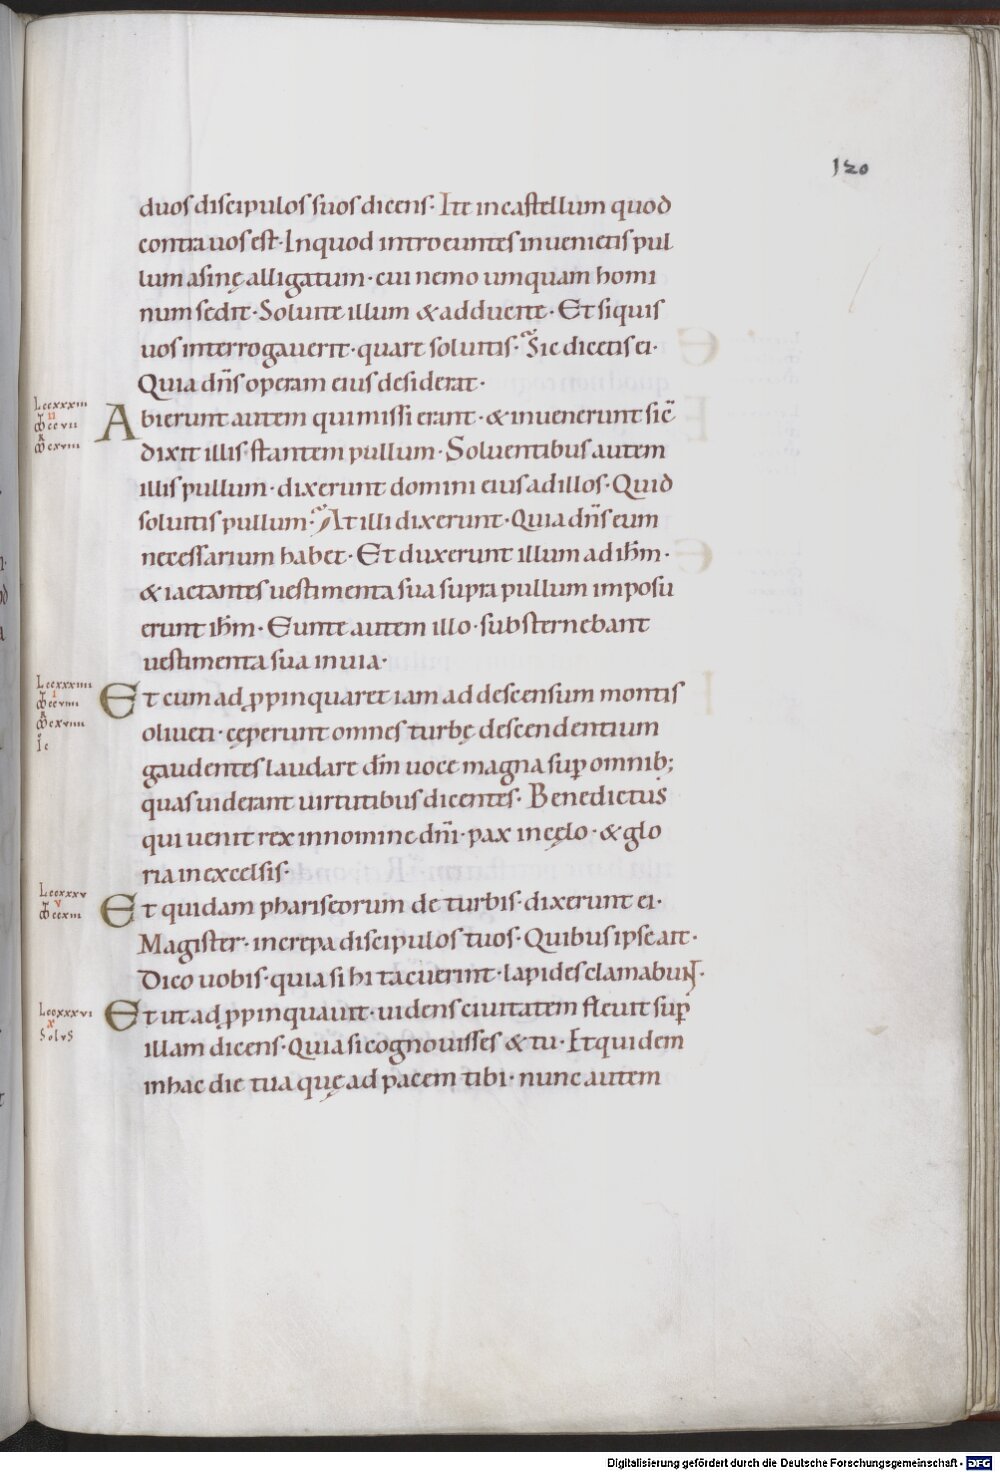 120
duos discipulos suos dicens· Ite in castellum quod
contra uos est· In quod introeuntes inuenietis pul
lum asinę alligatum· cui nemo umquam homi
num sedit· Soluite illum & adducite· Et si quis
uos interrogauerit· quare soluitis· Sic dicetis ei·
Quia dn̄s operam eius desiderat·
Abierunt autem qui missi erant· & inuenerunt sic̄
dixit illis· stantem pullum· Soluentibus autem
illis pullum· dixerunt domini eius ad illos· Quid
soluitis pullum· At illi dixerunt· Quia dn̄s eum
necessarium habet· Et duxerunt illum ad ih̄m·
& iactantes uestimenta sua supra pullum imposu
erunt ih̄m· Eunte autem illo· substernebant
uestimenta sua in uia·
Et cum adp̱pinquaret iam ad descensum montis
oliueti· cęperunt omnes turbę descendentium
gaudentes laudare dm̄ uoce magna sup̱ omnib;
quas uiderant uirtutibus dicentes· Benedictus
qui uenit rex in nomine dn̄i· pax in cęlo· & glo
ria in excelsis·
Et quidam phariseorum de turbis· dixerunt ei·
Magister· increpa discipulos tuos· Quibus ipse ait·
Dico uobis· quia si hi tacuerint· lapides clamabunt·
Et ut adp̱pinquauit· uidens ciuitatem fleuit sup̱
illam dicens· Quia si cognouisses & tu· Et quidem
in hac die tua quę ad pacem tibi· nunc autem
Lccxxxiii
ii
ccvii
cxviii
Lccxxxiiii
i
ccviiii
cxviiii
Ic
Lccxxxv
v
ccxiii
Lccxxxvi
x
Solvs
Digitalisierung gefördert durch die Deutsche Forschungsgemeinschaft - DFG